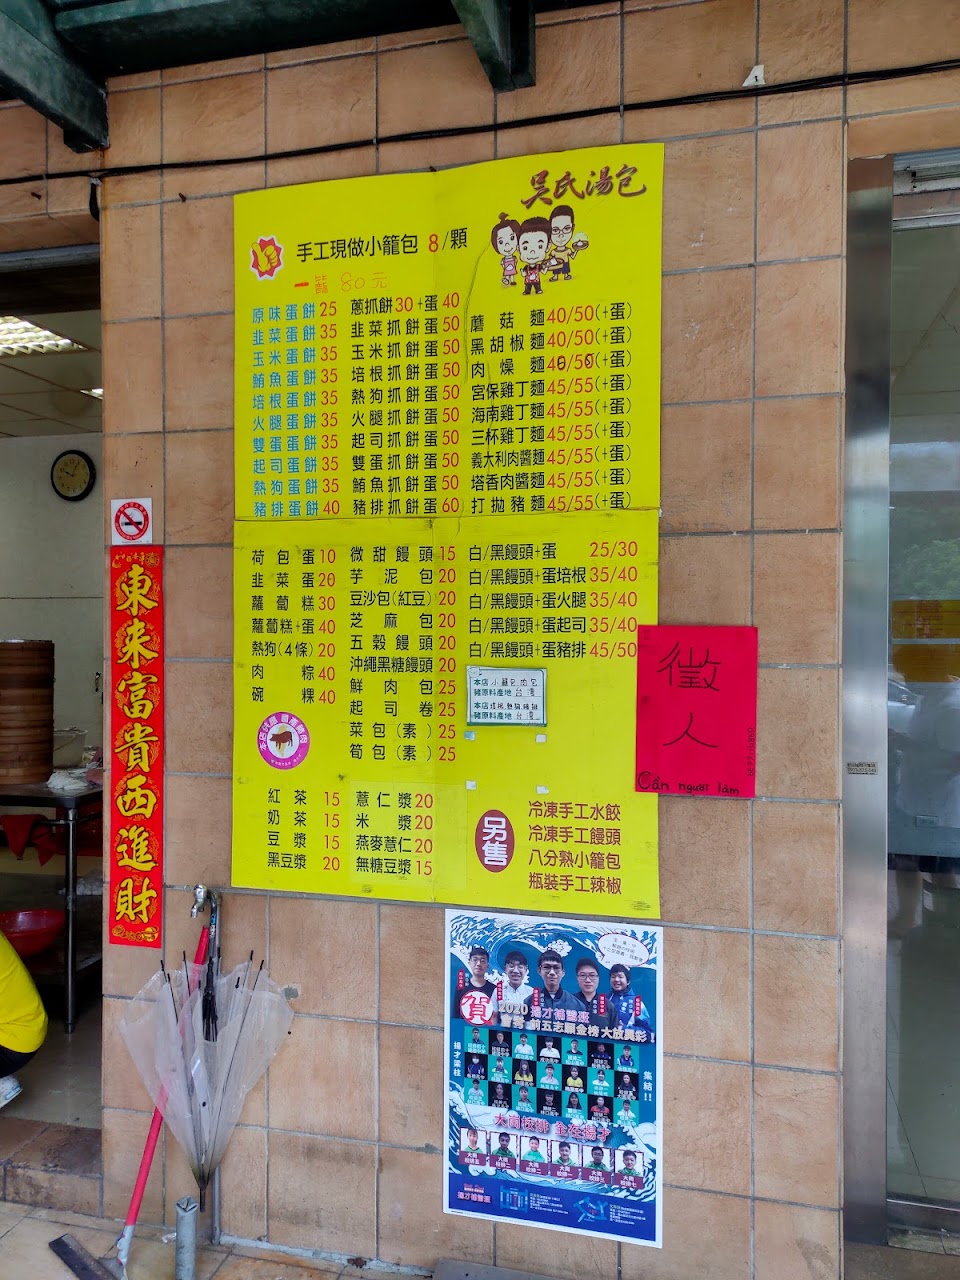 吳氏湯包
手工現做小籠包 8/顆
一籠 80元
原味蛋餅25
韭菜蛋餅35
玉米蛋餅35
鮪魚蛋餅35
培根蛋餅35
火腿蛋餅35
雙蛋蛋餅35
起司蛋餅35
熱狗蛋餅35
豬排蛋餅40
蔥抓餅30+蛋40
韭菜抓餅蛋50
玉米抓餅蛋50
培根抓餅蛋50
熱狗抓餅蛋50
火腿抓餅蛋50
起司抓餅蛋50
雙蛋抓餅蛋50
鮪魚抓餅蛋50
豬排抓餅蛋60
蘑菇麵40/50(+蛋)
黑胡椒麵40/50(+蛋)
肉燥麵40/50(+蛋)
宮保雞丁麵45/55(+蛋)
海南雞丁麵45/55(+蛋)
三杯雞丁麵45/55(+蛋)
義大利肉醬麵45/55(+蛋)
塔香肉醬麵45/55(+蛋)
打拋豬麵45/55(+蛋)
荷包蛋10
韭菜蛋20
蘿蔔糕30
蘿蔔糕+蛋40
熱狗(4條)20
肉粽40
碗粿40
微甜饅頭15
芋泥包20
豆沙包(紅豆)20
芝麻包20
五穀饅頭20
沖繩黑糖饅頭20
鮮肉包25
起司卷25
菜包(素)25
筍包(素)25
白/黑饅頭+蛋 25/30
白/黑饅頭+蛋培根35/40
白/黑饅頭+蛋火腿35/40
白/黑饅頭+蛋起司35/40
白/黑饅頭+蛋豬排45/50
本店小籠包肉包
豬原料產地台灣
豬原料產地台灣
紅茶 15
奶茶 15
豆漿 15
黑豆漿 20
薏仁漿20
米漿20
燕麥薏仁20
無糖豆漿15
另售
冷凍手工水餃
冷凍手工饅頭
八分熟小籠包
瓶裝手工辣椒
徵人
Cần người làm
東來富貴西進財
賀
2020 揚才補習班
前五志願金榜 大放異彩
揚才梁柱
集結!!
大崗校排 全在揚才
揚才補習班